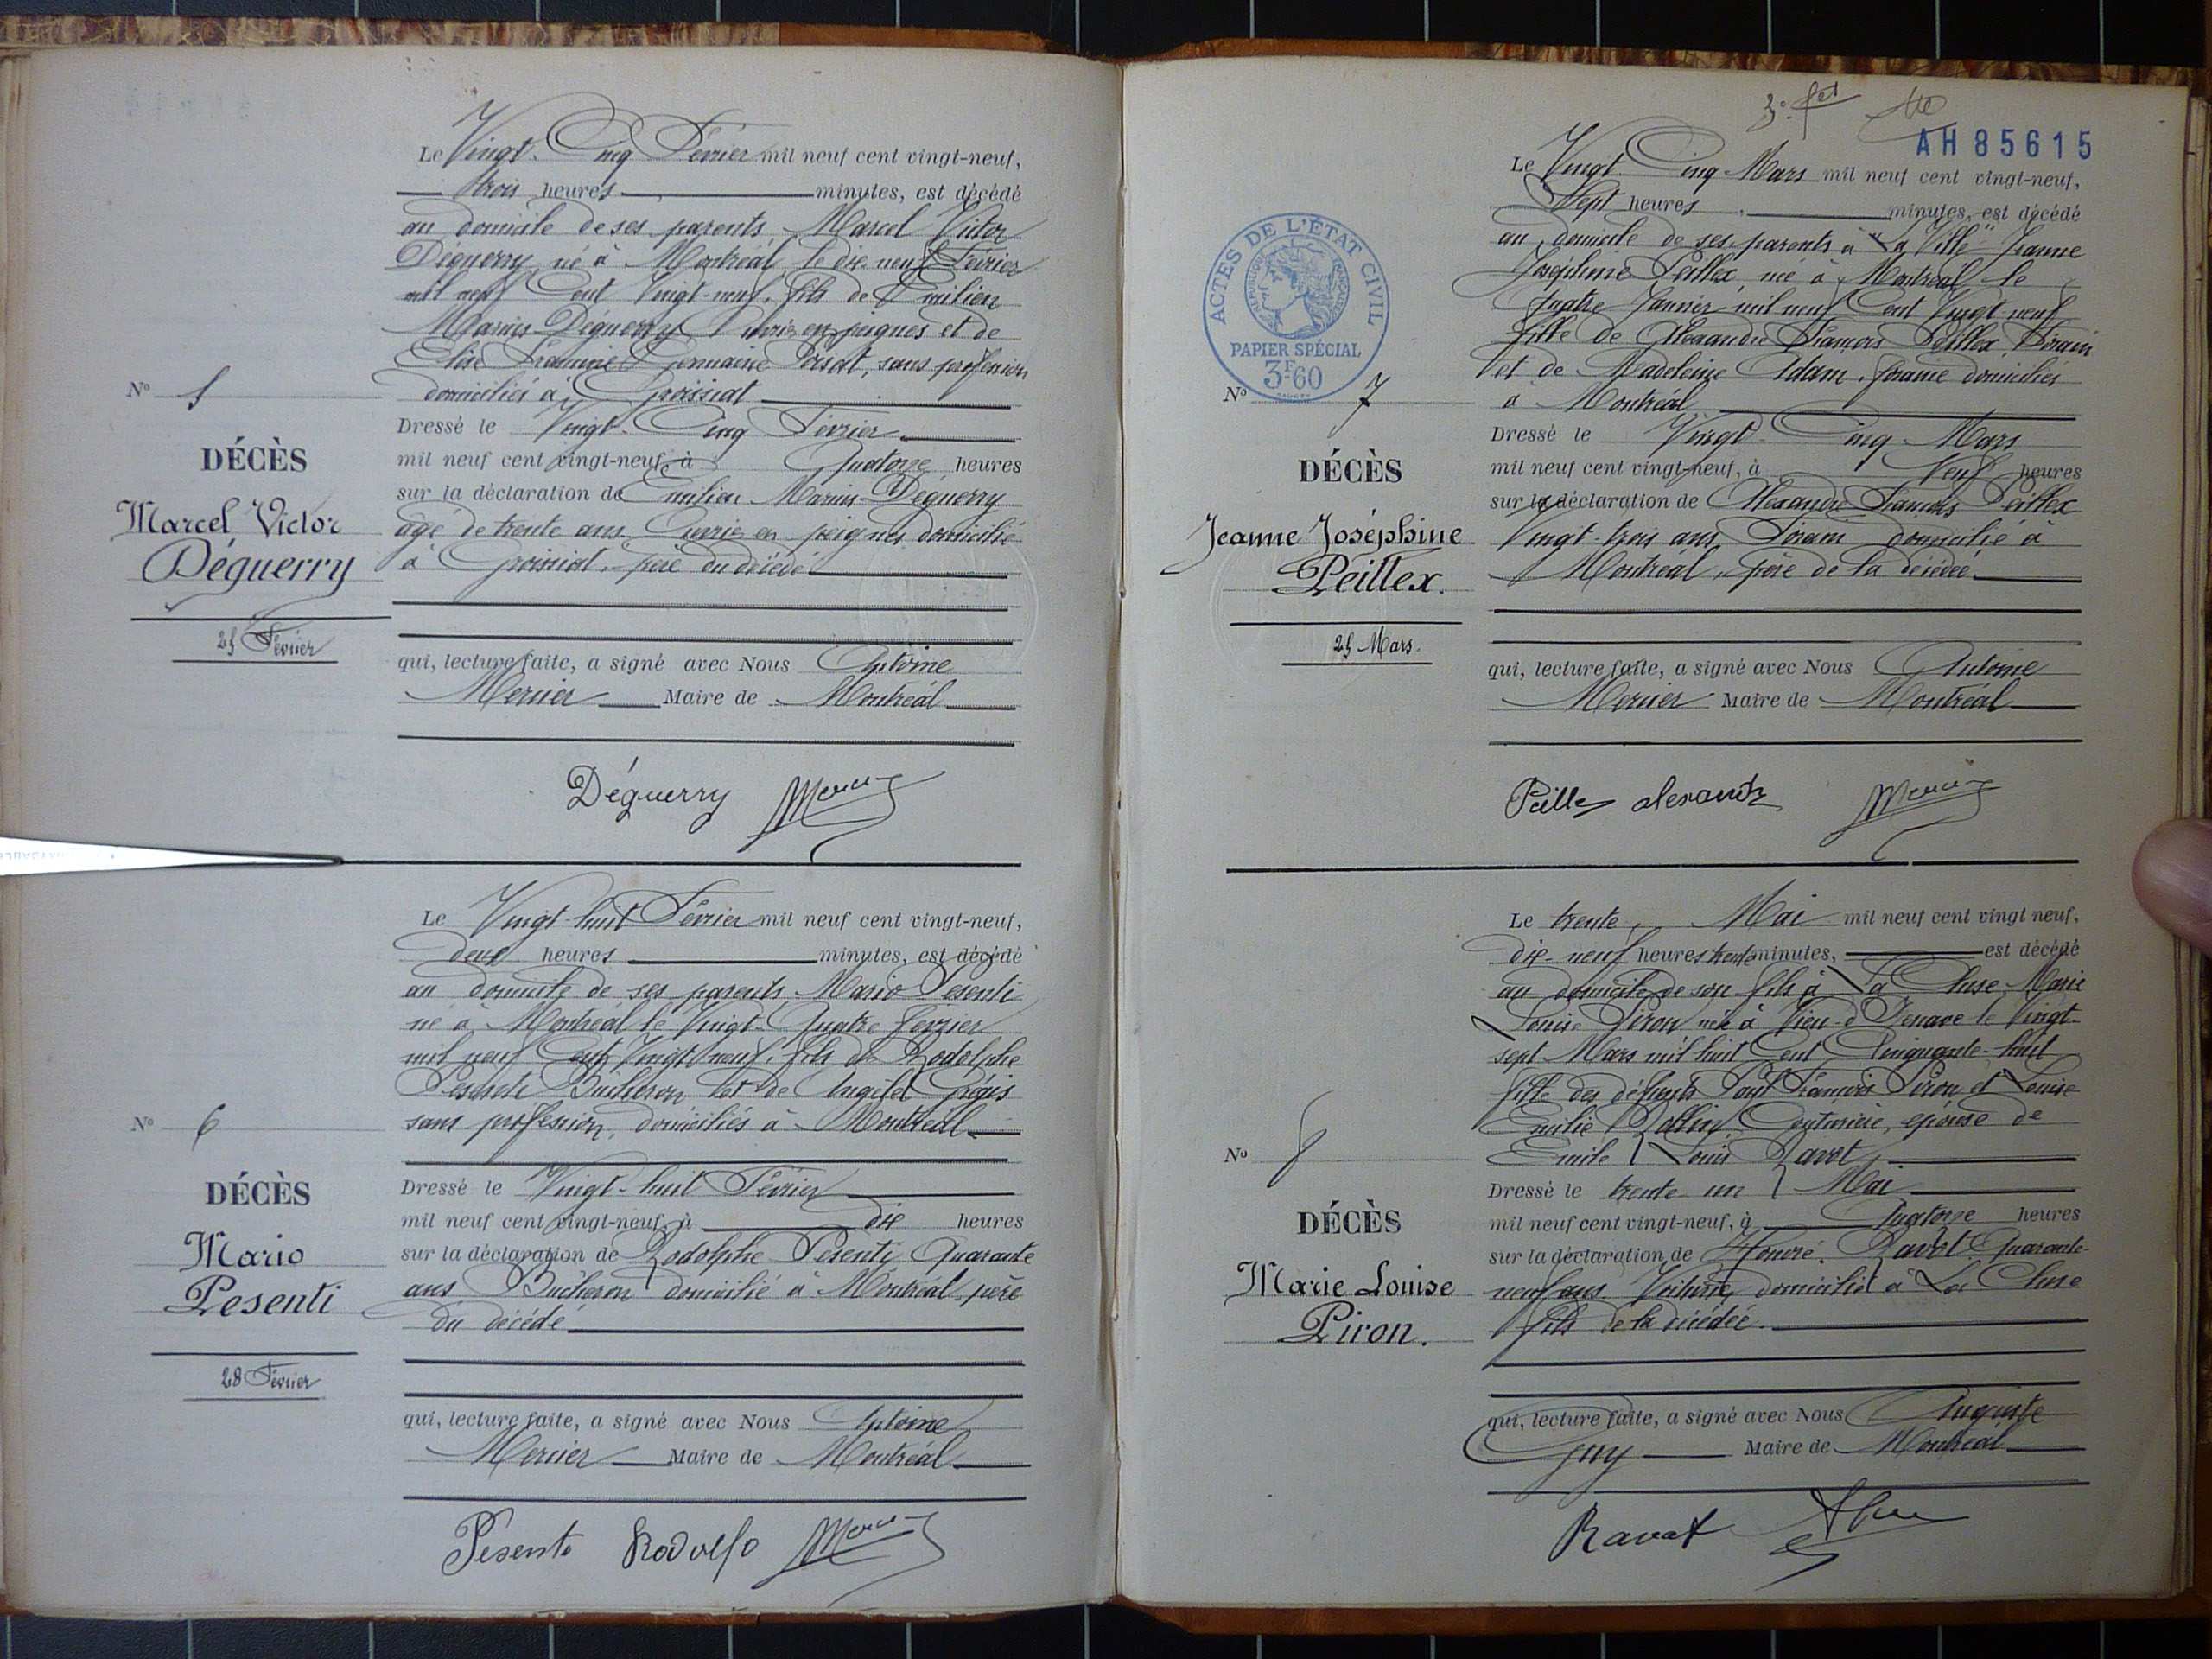 Le Vingt-Cinq Février mil neuf cent vingt-neuf,
trois heures minutes, est décédé
au domicile de ses parents, Marcel Victor
Déguerry, né à Montréal, le dix-neuf Février
mil neuf Cent Vingt-neuf, fils de Emilien
Marius Déguerry Ouvrier en peignes et de
Germaine sans profession
domiciliés à Groissiat
Nº 5
DÉCÈS
Marcel Victor
Déguerry
25 Février
Dressé le Vingt-Cinq Février
mil neuf cent vingt-neuf, à Quatorze heures
sur la déclaration de Emilien Marius Déguerry
âgé de trente ans, Ouvrier en peignes domicilié
à Groissiat, père du décédé
qui, lecture faite, a signé avec Nous Antoine
Mercier Maire de Montréal
Déguerry Mercier
Le Vingt-huit Février mil neuf cent vingt-neuf,
deux heures minutes, est décédé
au domicile de ses parents, Mario Pesenti
né à Montréal le Vingt-Quatre février
mil neuf Cent Vingt neuf, fils de Rodolphe
Pesenti Bûcheron et de Régis
sans profession, domiciliés à Montréal
Nº 6
DÉCÈS
Mario
Pesenti
28 Février
Dressé le Vingt-huit Février
mil neuf cent vingt-neuf, à dix heures
sur la déclaration de Rodolphe Pesenti, Quarante
ans Bûcheron domicilié à Montréal, père
du décédé
qui, lecture faite, a signé avec Nous Antoine
Mercier Maire de Montréal
Pesenti Rodolfo Mercier
AH 85615
ACTES DE L'ÉTAT CIVIL
RÉPUBLIQUE FRANÇAISE
PAPIER SPÉCIAL
3F60
Le Vingt Cinq Mars mil neuf cent vingt-neuf,
Sept heures minutes, est décédé
au domicile de ses parents à "La Ville" Jeanne
Joséphine Peillex, née à Montréal, le
quatre Janvier mil neuf Cent Vingt neuf
fille de Alexandre François Peillex, Forain
et de Madeleine Adam, foraine domiciliés
à Montréal
Nº 7
DÉCÈS
Jeanne Joséphine
Peillex.
25 Mars.
Dressé le Vingt-Cinq Mars
mil neuf cent vingt-neuf, à Neuf heures
sur la déclaration de Alexandre François Peillex
Vingt-trois ans, Forain domicilié à
Montréal, père de la décédée
qui, lecture faite, a signé avec Nous Antoine
Mercier Maire de Montréal
Peillex alexandre Mercier
Le trente Mai mil neuf cent vingt neuf,
dix-neuf heures trente minutes, est décédé
au domicile de son fils à La Cluse, Marie
Louise Piron née à Vieu-d'Izenave le Vingt-
sept Mars mil huit Cent Cinquante-huit
fille des défunts Paul François Piron et Louise
Emilie Couturière, épouse de
Emile Louis Ravot
Nº 8
DÉCÈS
Marie Louise
Piron.
Dressé le trente un Mai
mil neuf cent vingt-neuf, à Quatorze heures
sur la déclaration de Honoré Ravot Quarante-
neuf ans Voiturier, domicilié à La Cluse
fils de la décédée
qui, lecture faite, a signé avec Nous Auguste
Guy Maire de Montréal
Ravot